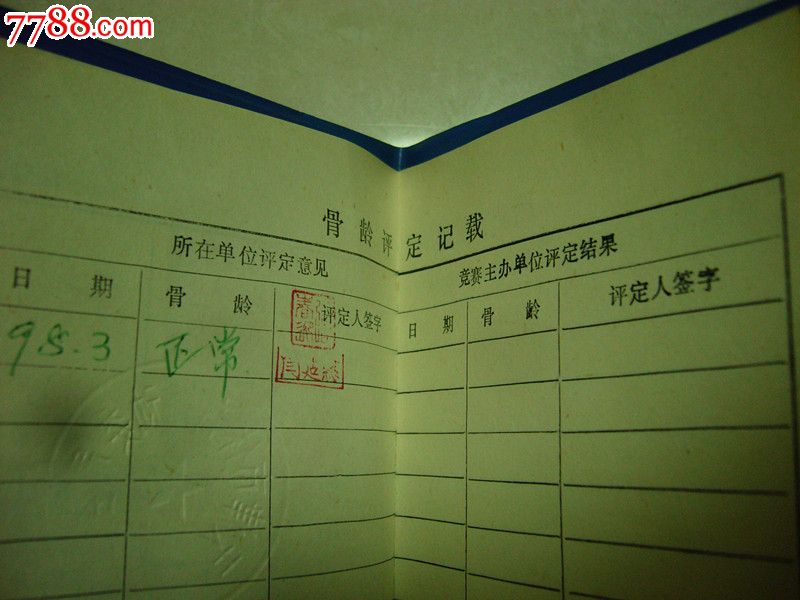 7788.com
骨龄评定记载
所在单位评定意见
竞赛主办单位评定结果
日期 骨龄 评定人签字 日期 骨龄 评定人签字
98.3 正常